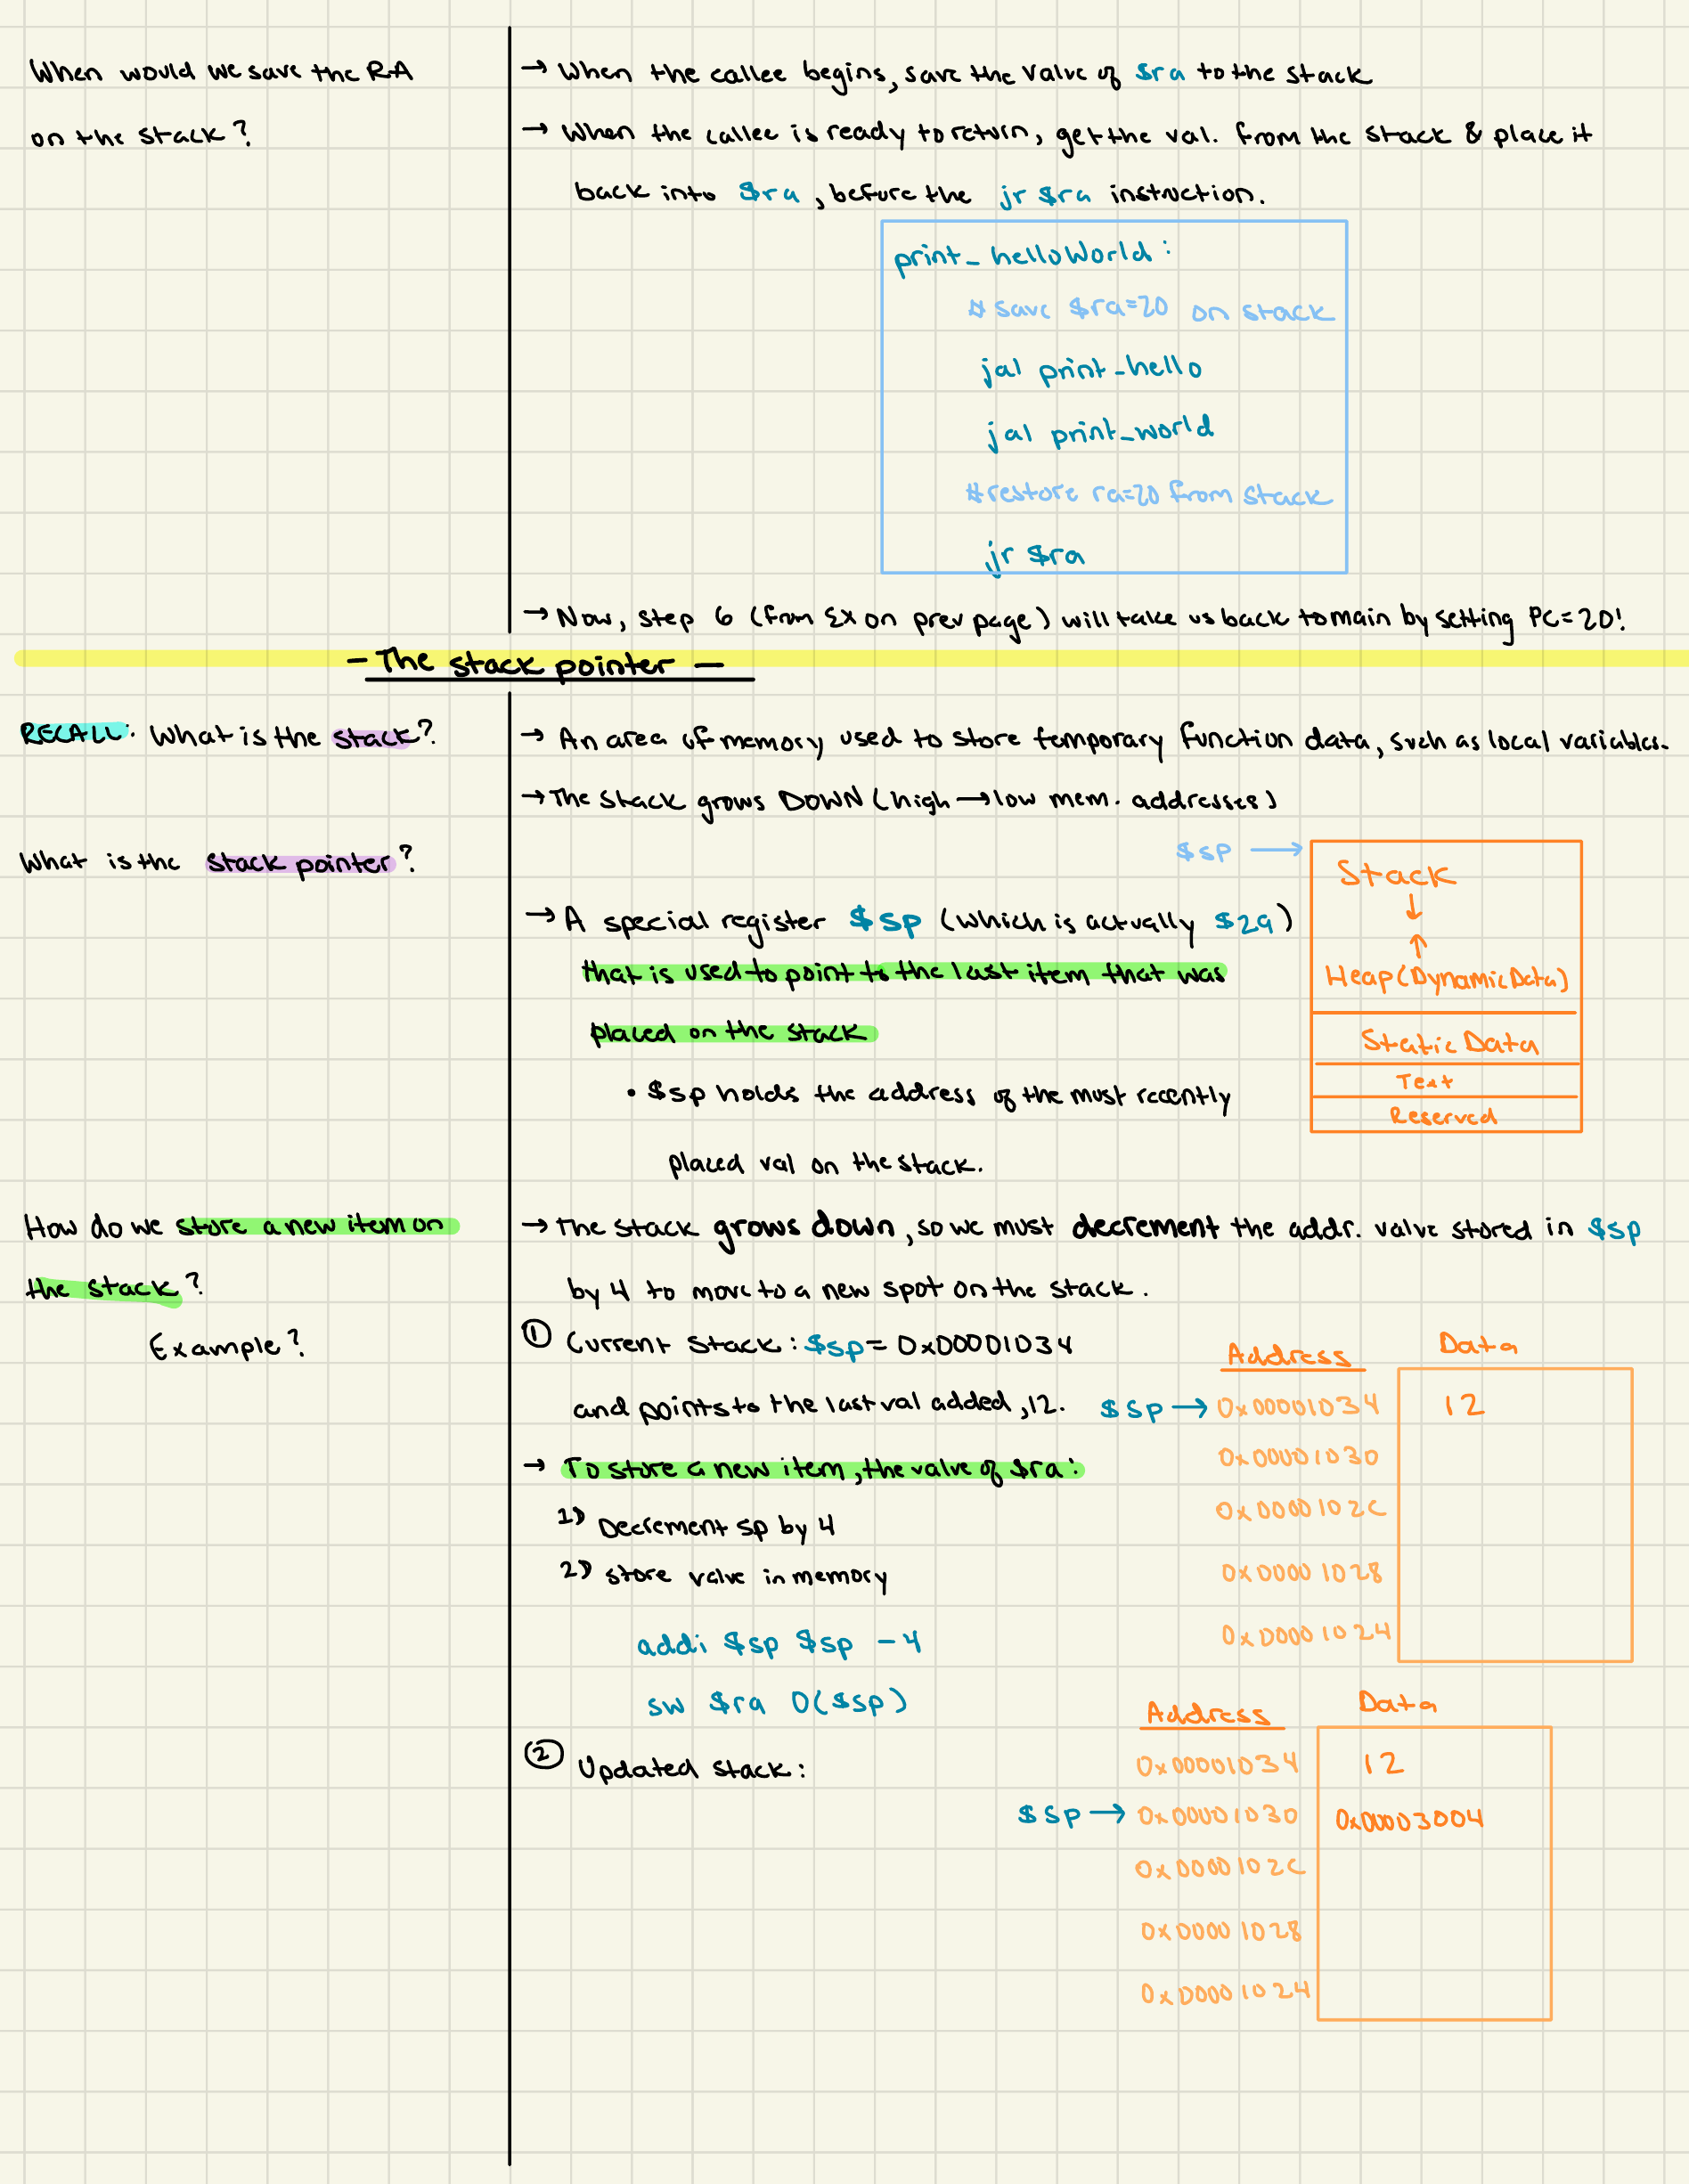 When would we save the RA
on the stack?
→ When the callee begins, save the value of $ra to the stack
→ When the callee is ready to return, get the val. from the stack & place it
back into $ra, before the jr $ra instruction.
print_helloWorld:
# save $ra=20 on stack
jal print_hello
jal print_world
#restore ra=20 from stack
jr $ra
→ Now, step 6 (from Ex on prev page) will take us back to main by setting PC=20!
- The stack pointer -
RECALL: What is the stack?
→ An area of memory used to store temporary function data, such as local variables.
→ The stack grows DOWN (high → low mem. addresses)
What is the stack pointer?
$sp →
Stack
↓
↑
Heap (Dynamic Data)
Static Data
Text
Reserved
→ A special register $sp (which is actually $29)
that is used to point to the last item that was
placed on the stack
• $sp holds the address of the most recently
placed val on the stack.
How do we store a new item on
the stack?
Example?
→ The stack grows down, so we must decrement the addr. value stored in $sp
by 4 to move to a new spot on the stack.
① Current Stack: $sp = 0x00001034
and points to the last val added, 12.
Address Data
$sp → 0x00001034 12
0x00001030
0x0000102C
0x00001028
0x00001024
→ To store a new item, the value of $ra:
1) Decrement sp by 4
2) store value in memory
addi $sp $sp -4
sw $ra 0($sp)
② Updated stack:
Address Data
0x00001034 12
$sp → 0x00001030 0x00003004
0x0000102C
0x00001028
0x00001024